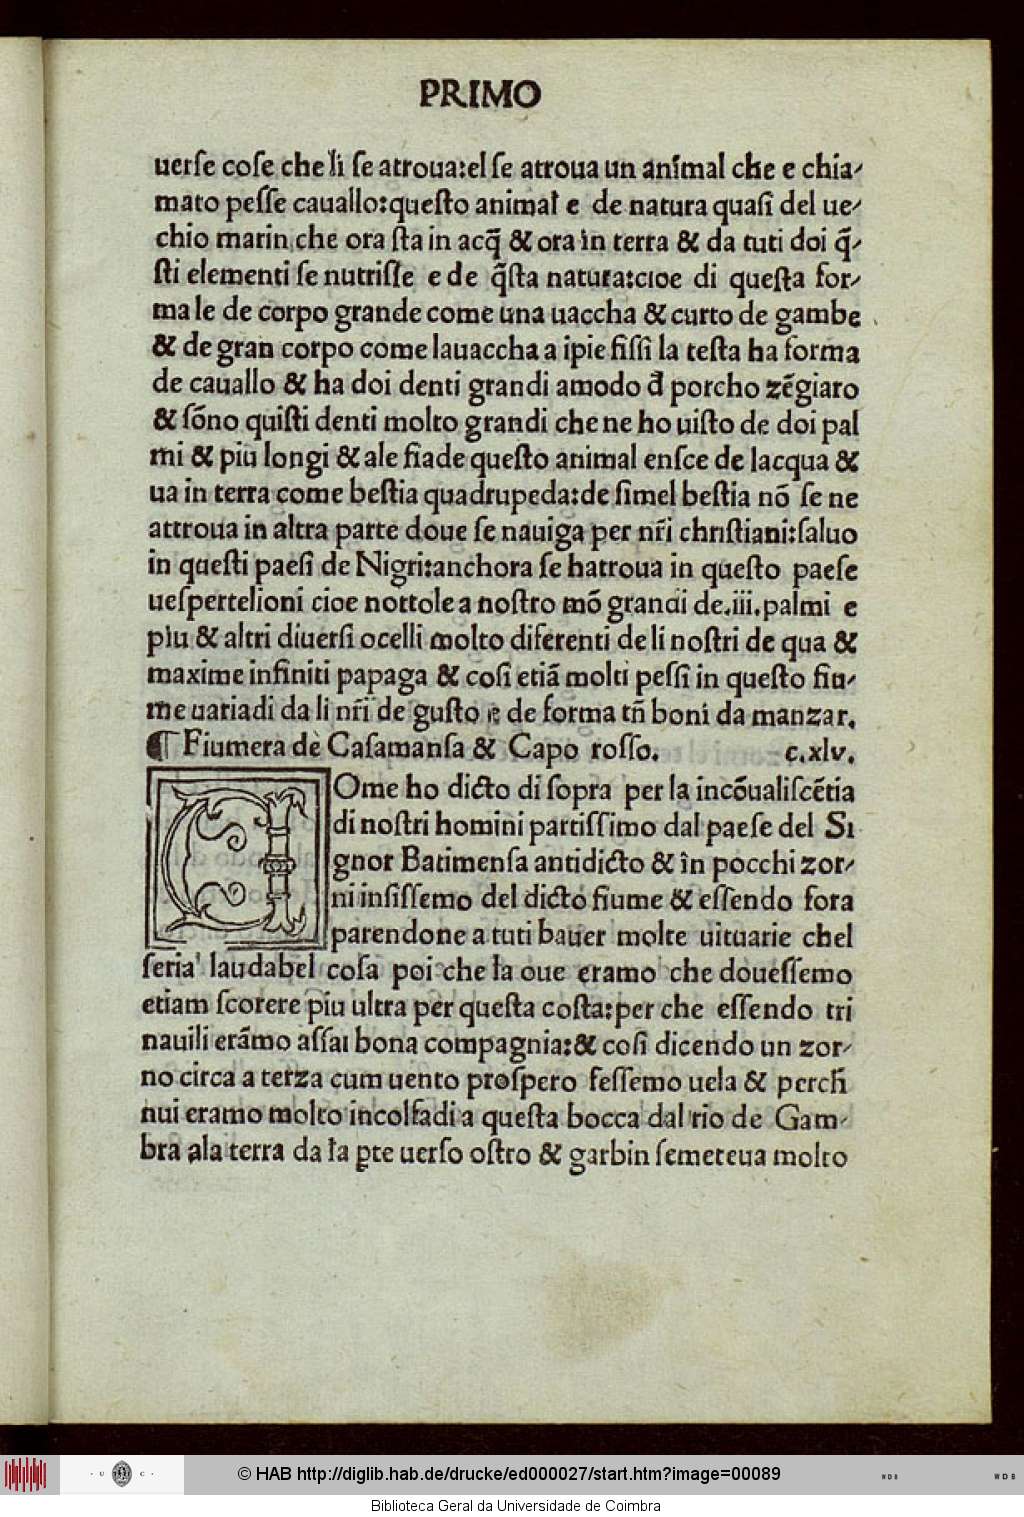 PRIMO
uerſe coſe che li ſe atroua:el ſe atroua un animal che e chia-
mato peſſe cauallo:queſto animal e de natura quaſi del ue-
chio marin che ora ſta in acq̄ & ora in terra & da tuti doi q̄-
ſti elementi ſe nutriſſe e de q̄ſta natura:cioe di queſta for-
ma le de corpo grande come una uaccha & curto de gambe
& de gran corpo come lauaccha a ipie fiſſi la teſta ha forma
de cauallo & ha doi denti grandi amodo đ porcho zēgiaro
& ſōno quiſti denti molto grandi che ne ho uiſto de doi pal
mi & piu longi & ale fiade queſto animal enſce de lacqua &
ua in terra come beſtia quadrupeda:de ſimel beſtia nō ſe ne
attroua in altra parte doue ſe nauiga per nr̄i chriſtiani:ſaluo
in queſti paeſi de Nigri:anchora ſe hatroua in queſto paeſe
ueſpertelioni cioe nottole a noſtro mō grandi de.iii.palmi e
piu & altri diuerſi ocelli molto diferenti de li noſtri de qua &
maxime infiniti papaga & coſi etiā molti peſſi in queſto fiu-
me uariadi da li nr̄i de guſto & de forma tn̄ boni da manzar.
¶ Fiumera de Caſamanſa & Capo roſſo. c.xlv.
COme ho dicto di ſopra per la incōualiſcētia
di noſtri homini partiſſimo dal paeſe del Si
gnor Batimenſa antidicto & in pocchi zor-
ni inſiſſemo del dicto fiume & eſſendo fora
parendone a tuti hauer molte uituarie chel
ſeria laudabel coſa poi che la oue eramo che doueſſemo
etiam ſcorere piu ultra per queſta coſta:per che eſſendo tri
nauili erāmo aſſai bona compagnia:& coſi dicendo un zor-
no circa a terza cum uento proſpero feſſemo uela & perch̄
nui eramo molto incolfadi a queſta bocca dal rio de Gam-
bra ala terra da la ꝑte uerſo oſtro & garbin ſemeteua molto
© HAB http://diglib.hab.de/drucke/ed000027/start.htm?image=00089
U C
WDB
WDB
Biblioteca Geral da Universidade de Coimbra